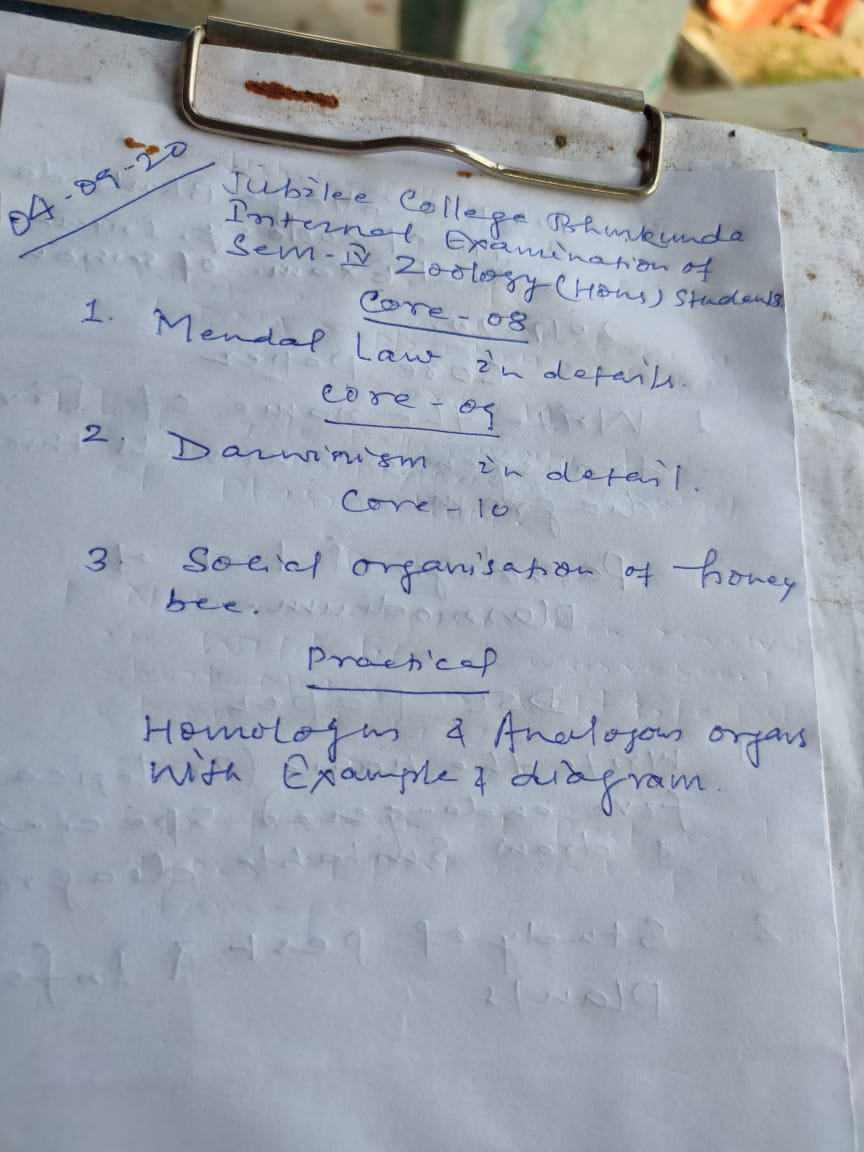 04-09-20
Jubilee College Bhurkunda
Internal Examination of
Sem-IV Zoology (Hons) Students
Core-08
1. Mendal Law in details.
Core-09
2. Darwinism in detail.
Core-10
3. Social organisation of honey
bee.
Practical
Homologus & Analogous organs
With Example & diagram.